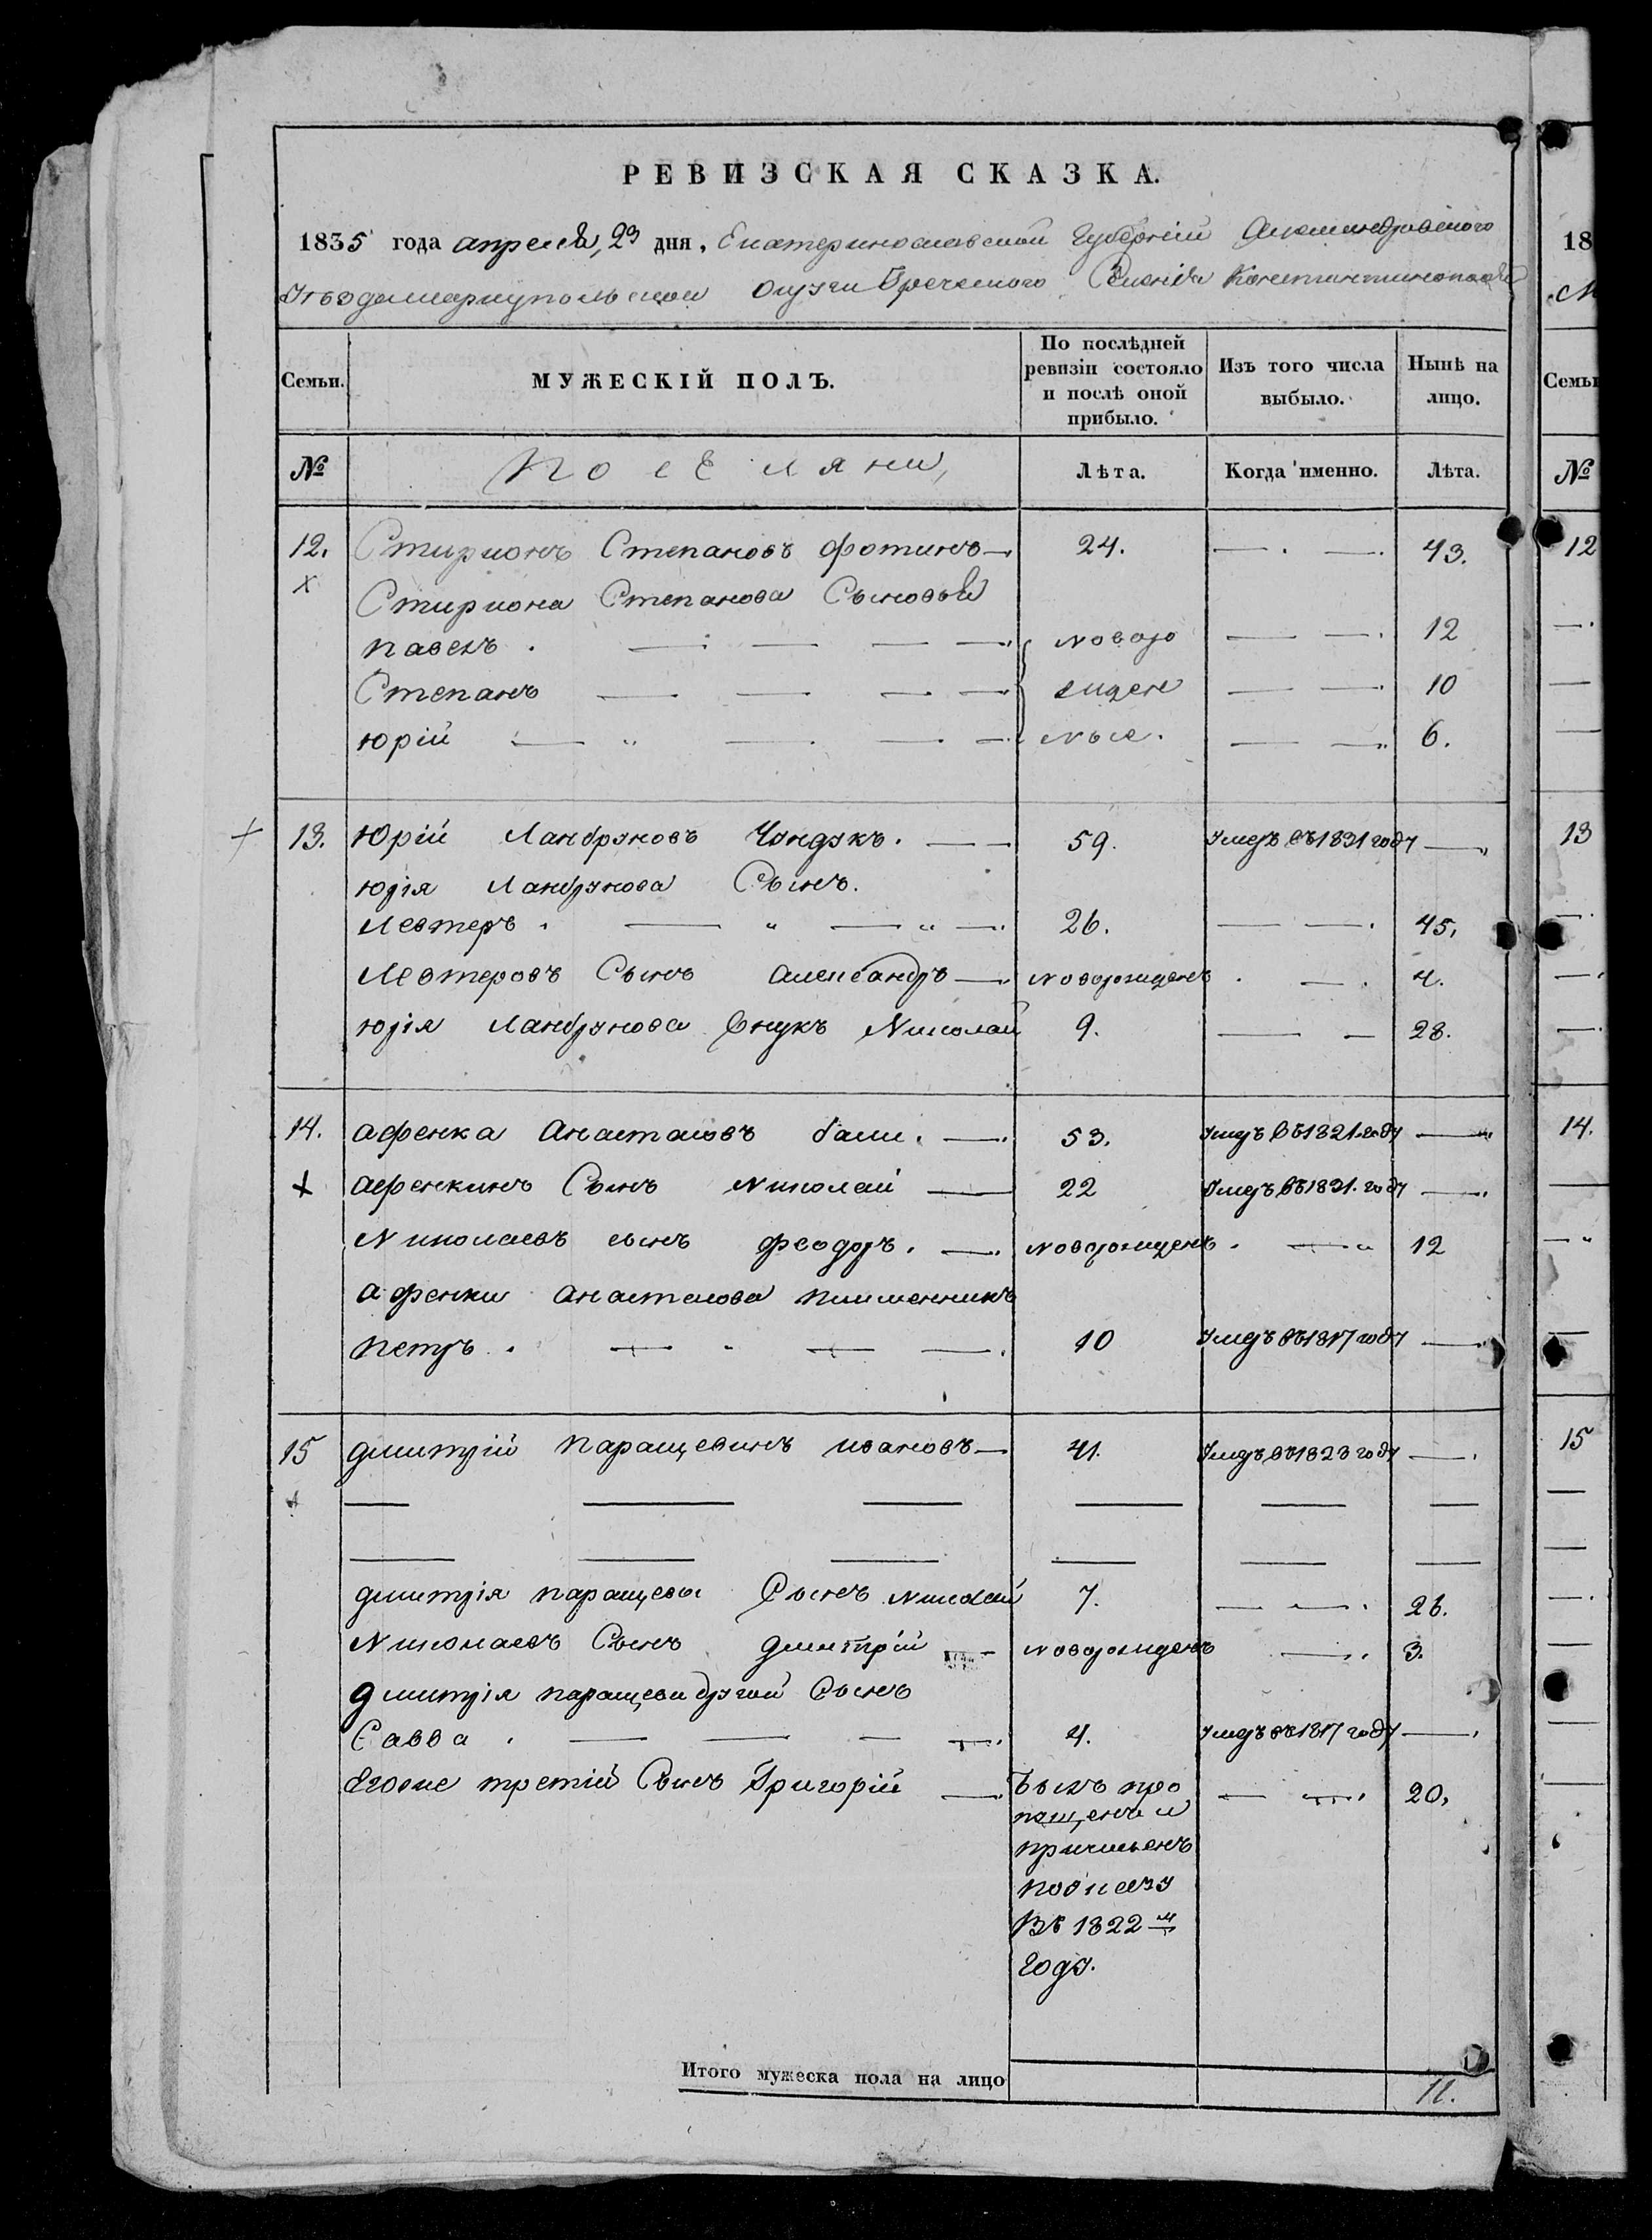 РЕВИЗСКАЯ СКАЗКА.
1835 года апреля, 23 дня, Екатеринославской Губернии Александровского
Уезда мариупольской округи Греческого Селения Константинополя
Семьи. МУЖЕСКІЙ ПОЛЪ. По послѣдней ревизіи состояло и послѣ оной прибыло. Изъ того числа выбыло. Нынѣ на лицо.
№ Поселяни, Лѣта. Когда именно. Лѣта.
12. Стирионъ Степановъ фотинъ 24. 43.
Стириона Степанова Сыновья
павелъ новоро 12
Степанъ жден 10
юрій ные. 6.
13. Юрій Ламбруновъ Чундукъ. 59. Умеръ въ 1831 году
юрія Ламбрунова Сынъ.
Левтеръ 26. 45.
Левтеровъ Сынъ александръ новорожденъ 4.
юрія Ламбрунова внукъ Николай 9. 28.
14. афенка Анастасовъ баши. 53. Умеръ въ 1821 году
афенкинъ Сынъ Николай 22 Умеръ въ 1831. году
Николаевъ сынъ феодоръ. новорожденъ 12
афенки анастасова племянникъ
петръ 10 Умеръ въ 1817 году
15 дмитрій паращевинъ ивановъ 41. Умеръ въ 1823 году
дмитрія паращевы Сынъ Николай 7. 26.
Николаевъ Сынъ дмитрій новорожденъ 3.
дмитрія паращевы другой Сынъ
Савва 4. Умеръ въ 1817 году
Егоже третій Сынъ Григорій Былъ про 20.
пущенъ и
причисленъ
по указу
Въ 1822 м
году.
Итого мужеска пола на лицо 11.
18
М
Семьи
№
12
13
14.
15